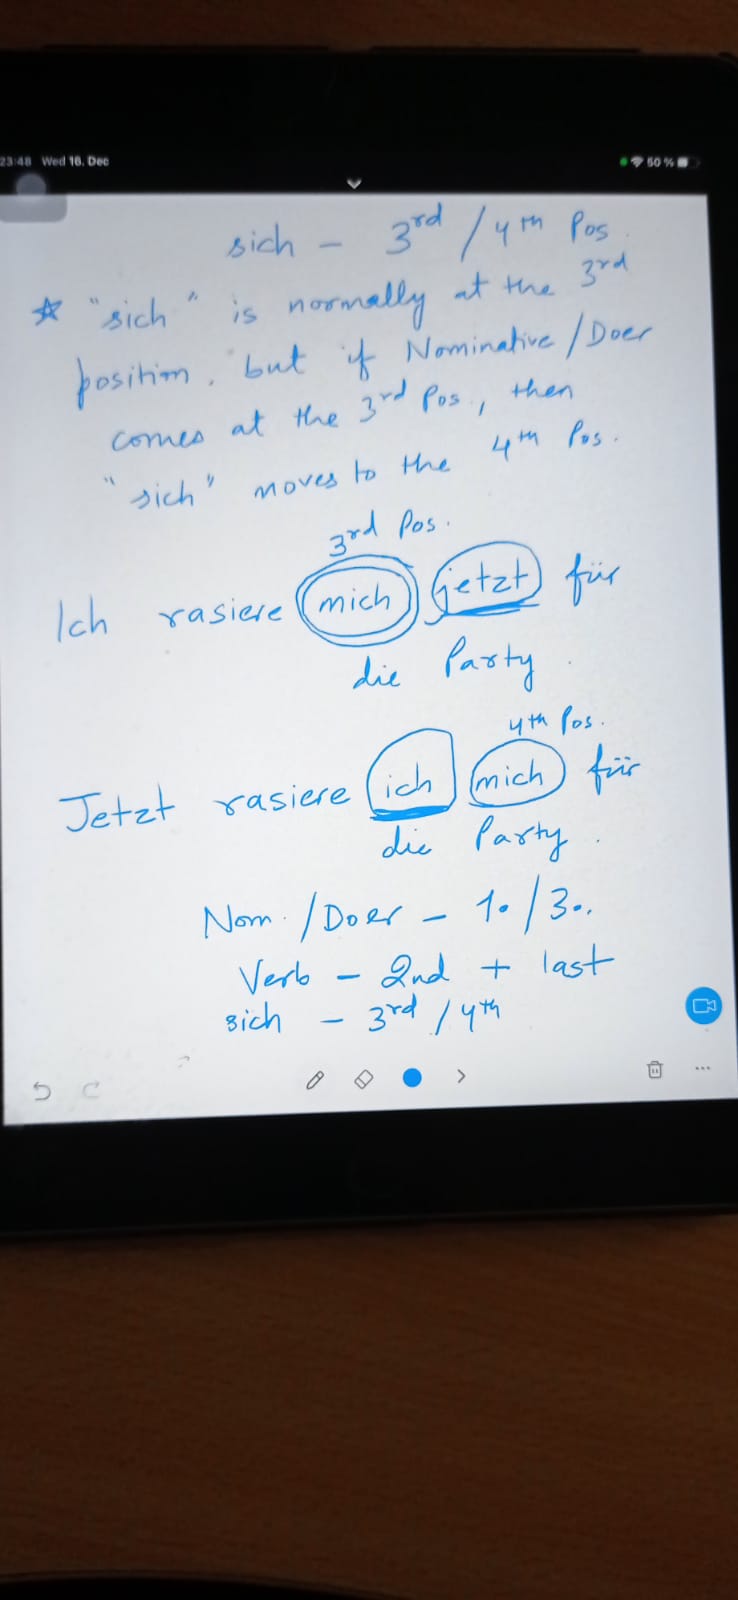 23:48 Wed 16. Dec
50 %
sich - 3rd / 4th Pos.
☆ "sich" is normally at the 3rd
position, but if Nominative/Doer
comes at the 3rd Pos., then
"sich" moves to the 4th Pos.
3rd Pos.
Ich rasiere mich jetzt für
die Party.
4th Pos.
Jetzt rasiere ich mich für
die Party.
Nom. / Doer - 1. / 3.
Verb - 2nd + last
sich - 3rd / 4th